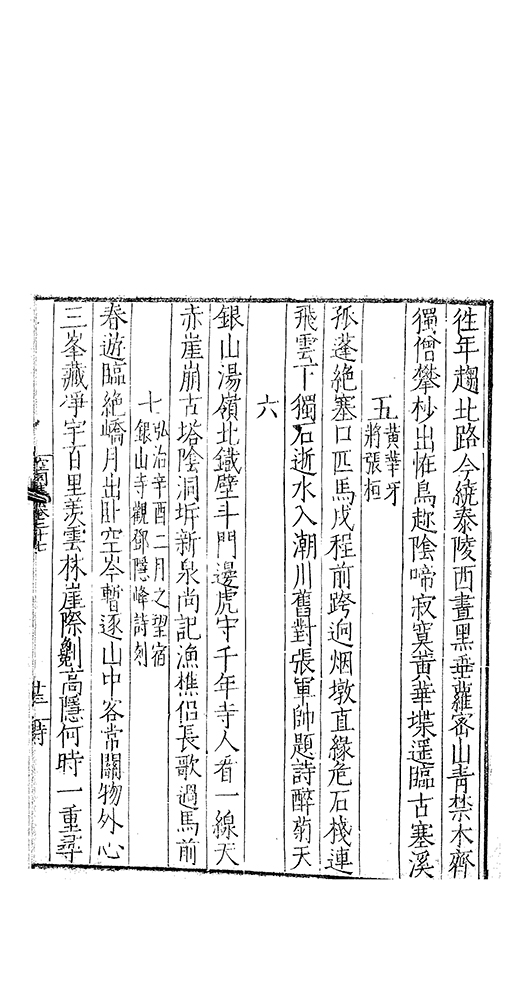 徃年趨北路今繞泰陵西晝黑垂蘿宻山青禁木齊
獨僧攀杪出恠鳥趂陰啼寂寞黄華堞遥臨古塞溪
五 黄華牙將張桓
孤蓬絶塞口匹馬戍程前跨迥烟墩直縁危石棧連
飛雲下獨石逝水入潮川舊對張軍帥題詩醉菊天
六
銀山湯嶺北鐡壁斗門邊虎守千年寺人看一線天
赤崖崩古塔陰洞坼新泉尚記漁樵侣長歌過馬前
七 弘治辛酉二月之望宿銀山寺觀鄧隱峰詩刻
春遊臨絶嶠月出卧空岑暫逐山中客常關物外心
三峯藏凈宇百里羡雲林崖際劖高隱何時一重尋
卷二十七
廿二
詩